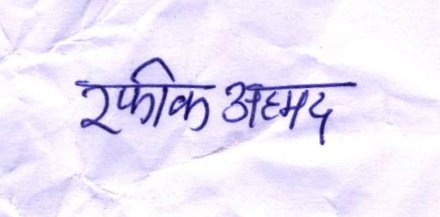 रफीक अहमद